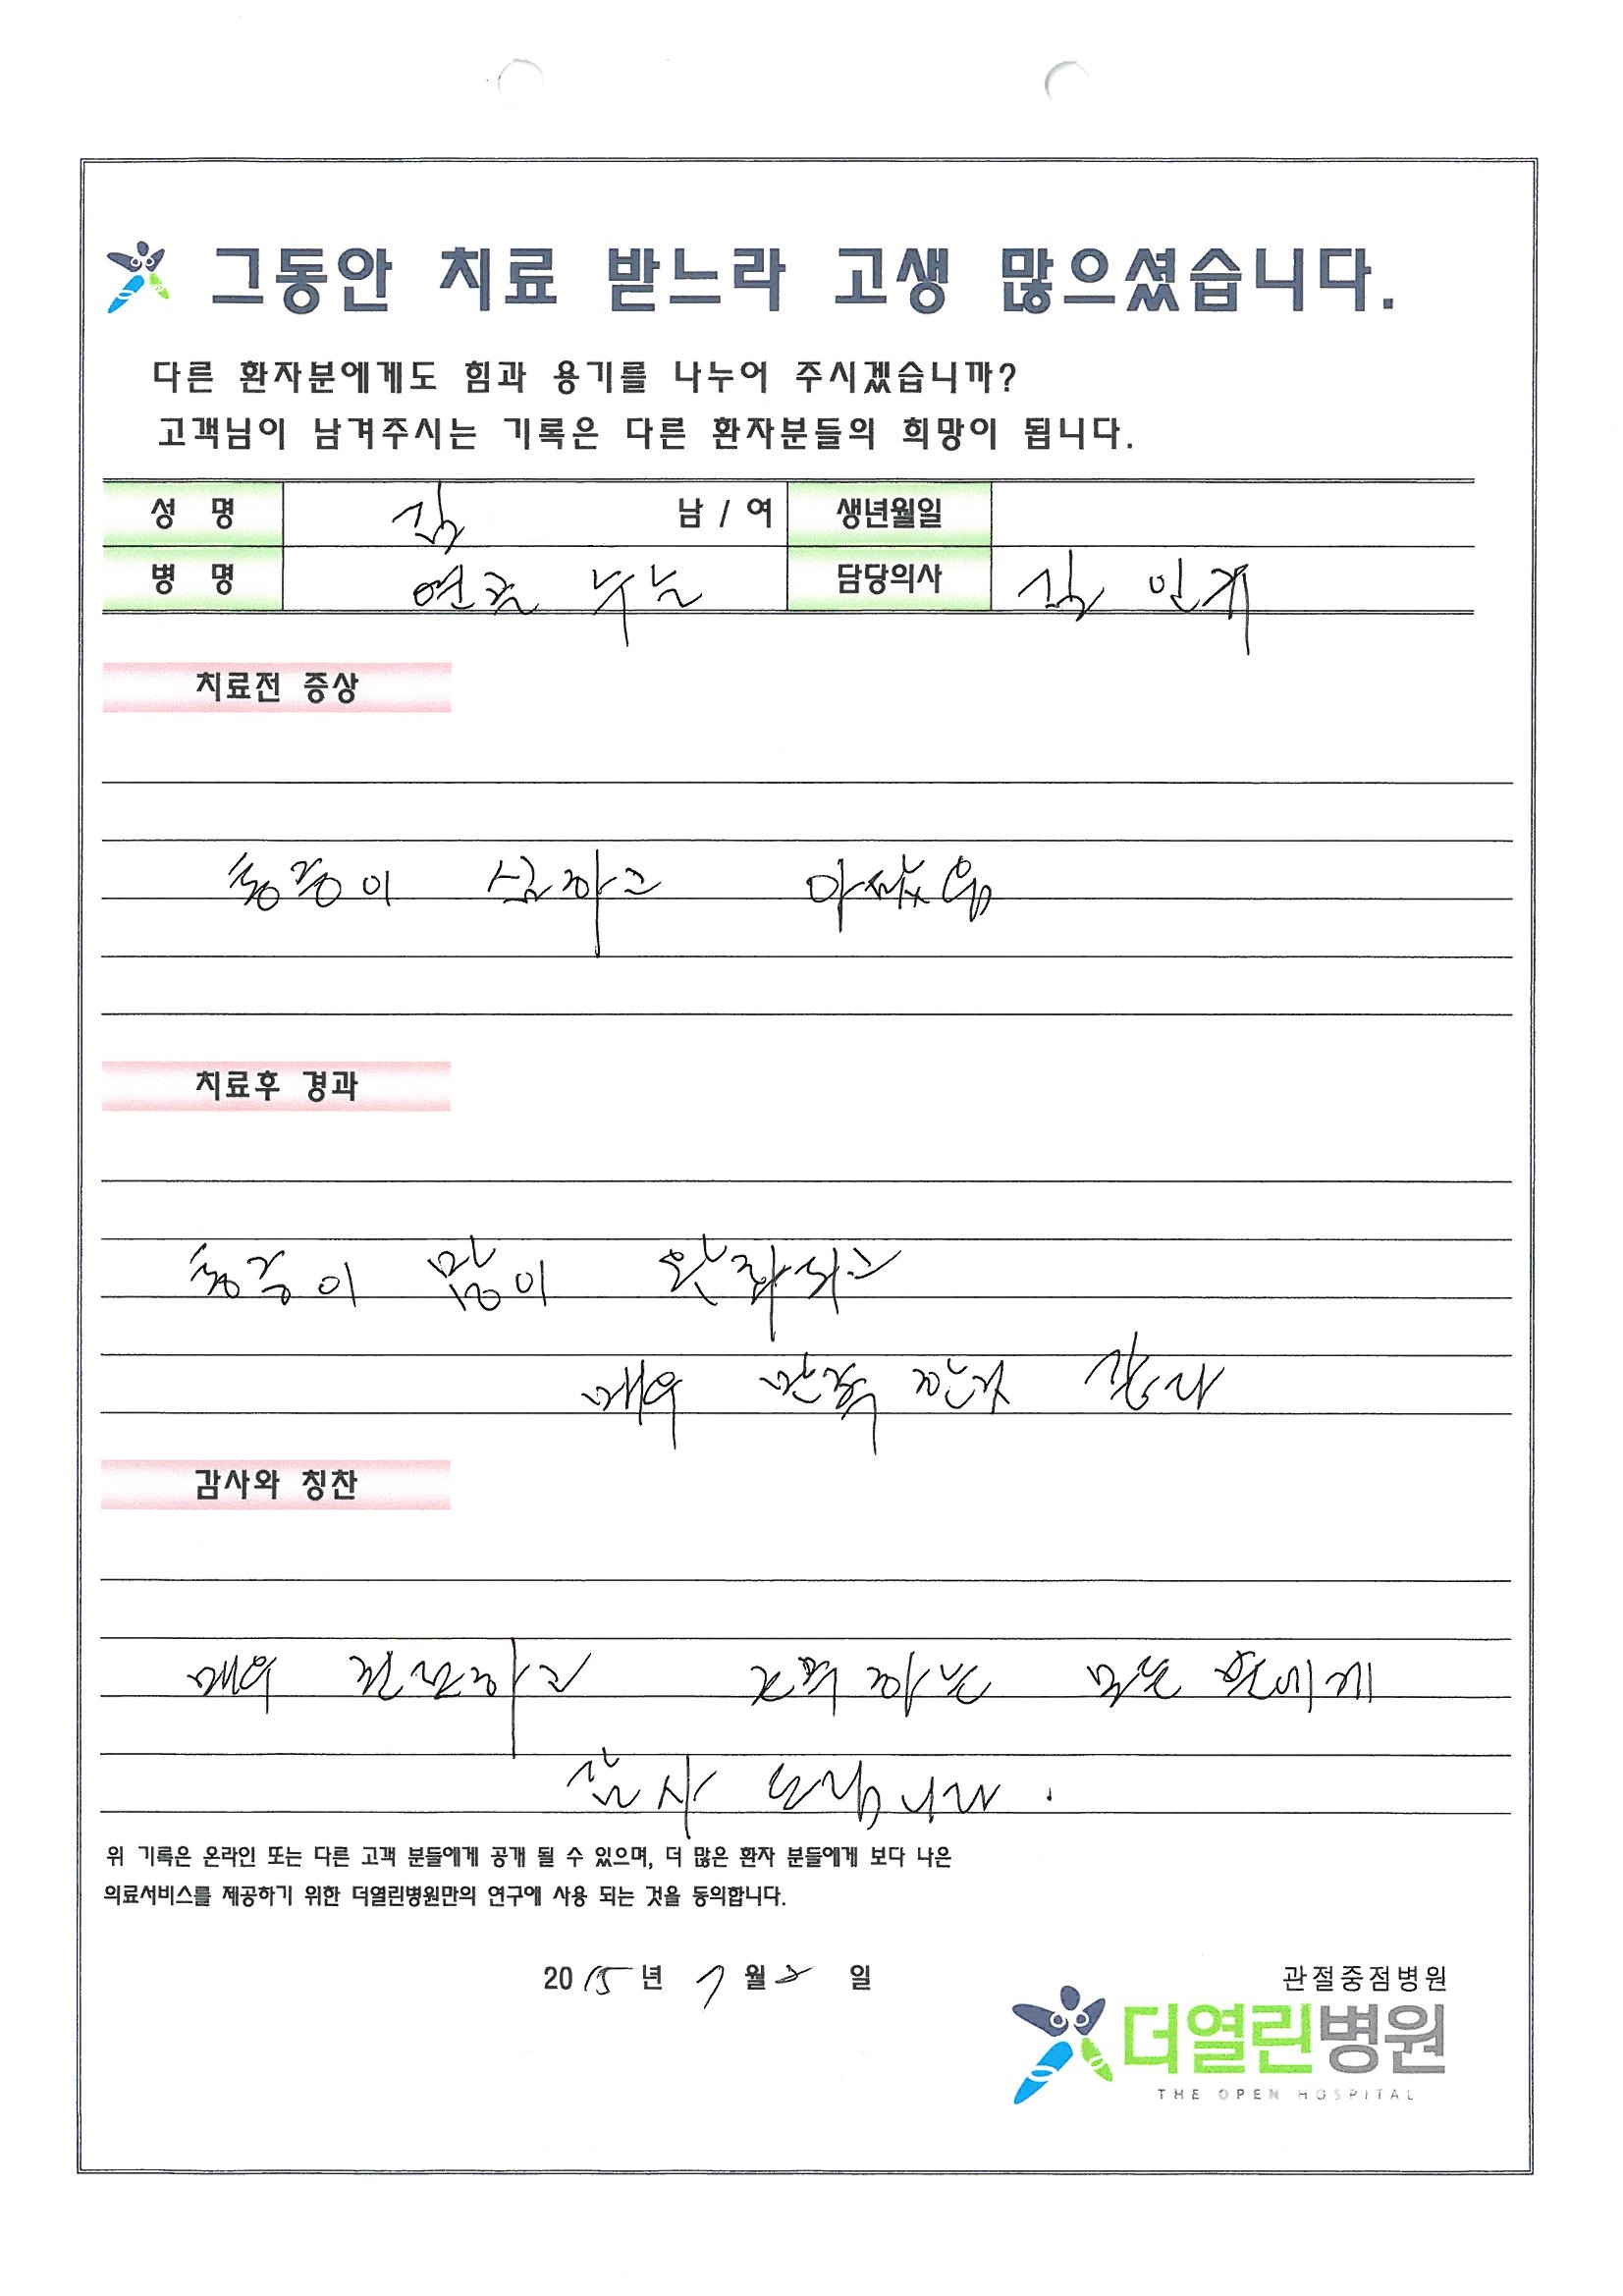 그동안 치료 받느라 고생 많으셨습니다.
다른 환자분에게도 힘과 용기를 나누어 주시겠습니까?
고객님이 남겨주시는 기록은 다른 환자분들의 희망이 됩니다.
성 명 김 남 / 여 생년월일
병 명 연골 담당의사 김
치료전 증상
통증이 심하고
치료후 경과
통증이 많이 완화되고
매우 만족 같다
감사와 칭찬
매우 하는 모든 분에게
감사 드립니다.
위 기록은 온라인 또는 다른 고객 분들에게 공개 될 수 있으며, 더 많은 환자 분들에게 보다 나은
의료서비스를 제공하기 위한 더열린병원만의 연구에 사용 되는 것을 동의합니다.
2015년 7월 2일
관절중점병원
더열린병원
THE OPEN HOSPITAL